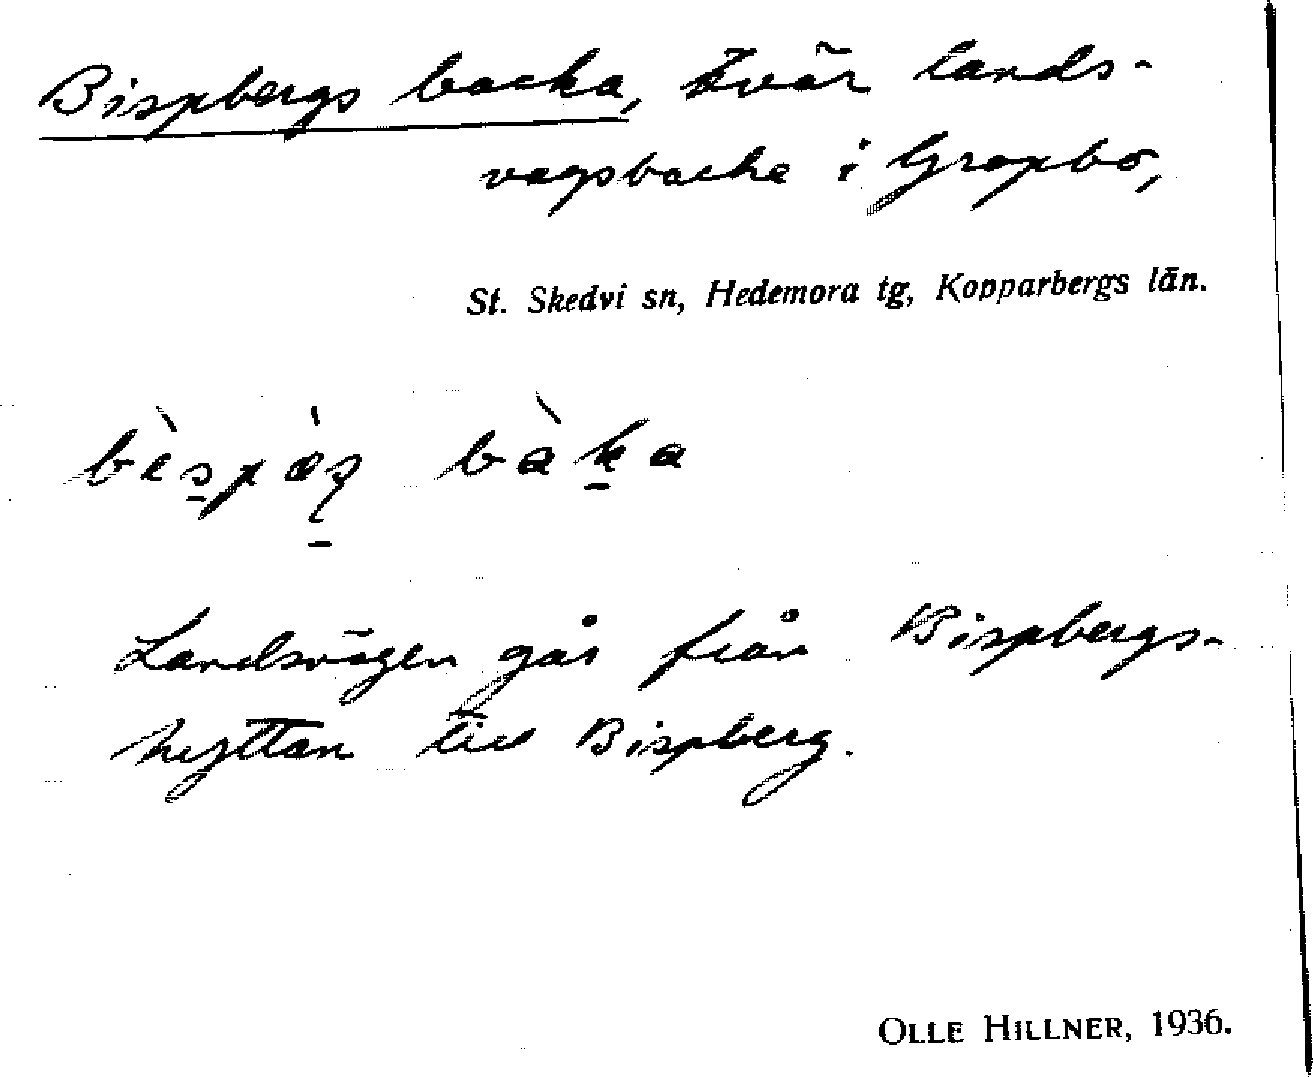 Bispbergs backa, svår lands-
vägsbacke i Gropbo,
St. Skedvi sn, Hedemora tg, Kopparbergs län.
bàka
Landsvägen går från Bispbergs-
hyttan till Bispberg.
OLLE HILLNER, 1936.